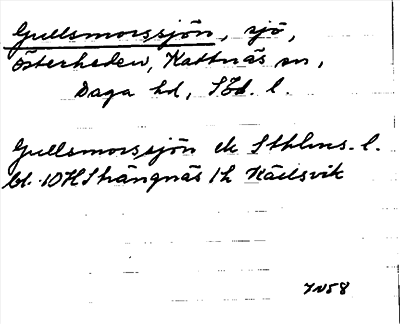 Gullsmorssjön, sjö,
Österheden, Kattnäs sn,
Daga hd, Söd. l.
Gullsmorssjön ek Sthlms. l.
bl. 10H Strängnäs 1h Kärlsvik
7N58